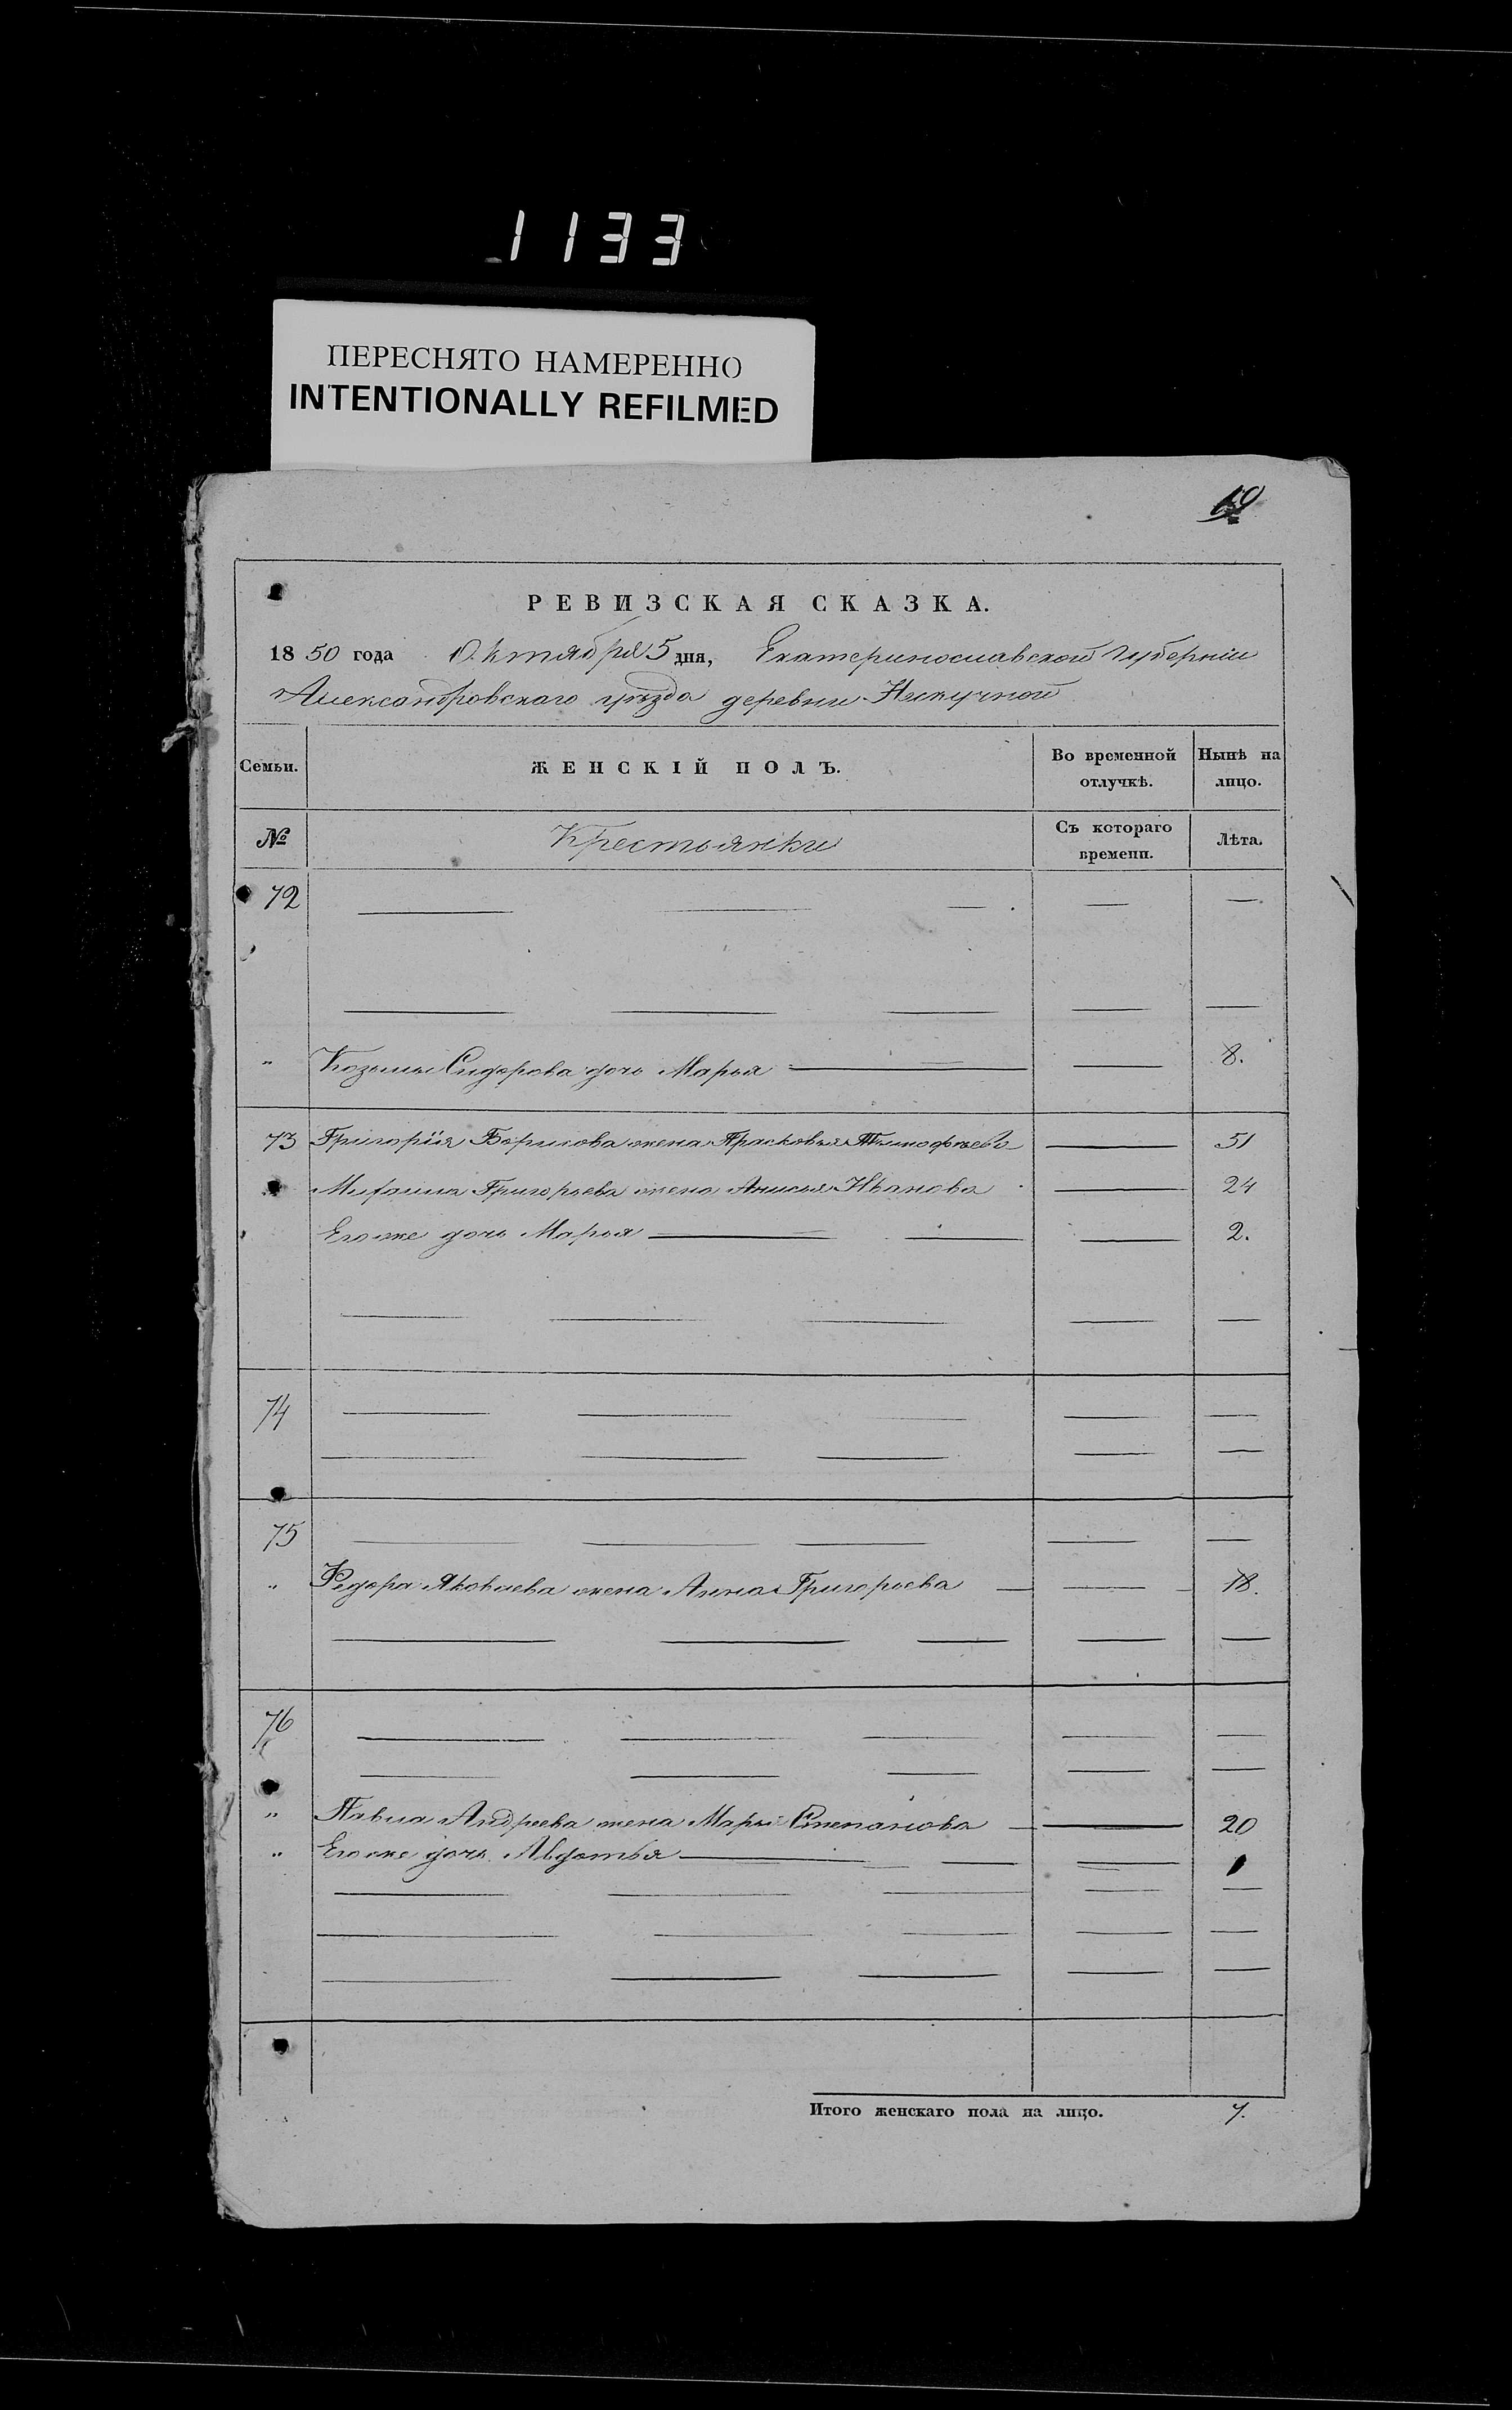 1133
ПЕРЕСНЯТО НАМЕРЕННО
INTENTIONALLY REFILMED
РЕВИЗСКАЯ СКАЗКА.
1850 года Октября 5 дня, Екатеринославской Губерніи
Александровскаго уѣзда деревни Нескучной
Семьи. ЖЕНСКІЙ ПОЛЪ. Во временной отлучкѣ. Нынѣ на лицо.
№ Крестьянки Съ котораго времени. Лѣта.
72 — — — — —
— — — — —
" Козьмы Сидорова дочь Марья — — 8.
73 Григорія Борисова жена Прасковья Тимофѣева — 51
Михаила Григорьева жена Анисья Иванова — 24
Его же дочь Марья — — — 2.
— — — — —
74 — — — — —
— — — — —
75 — — — — —
" Федора Яковлева жена Анна Григорьева — — 18.
— — — — —
76 — — — — —
— — — — —
" Павла Андреева жена Марья Степанова — — 20
" Его же дочь Авдотья — — — 1
— — — — —
— — — — —
— — — — —
Итого женскаго пола на лицо. 7.